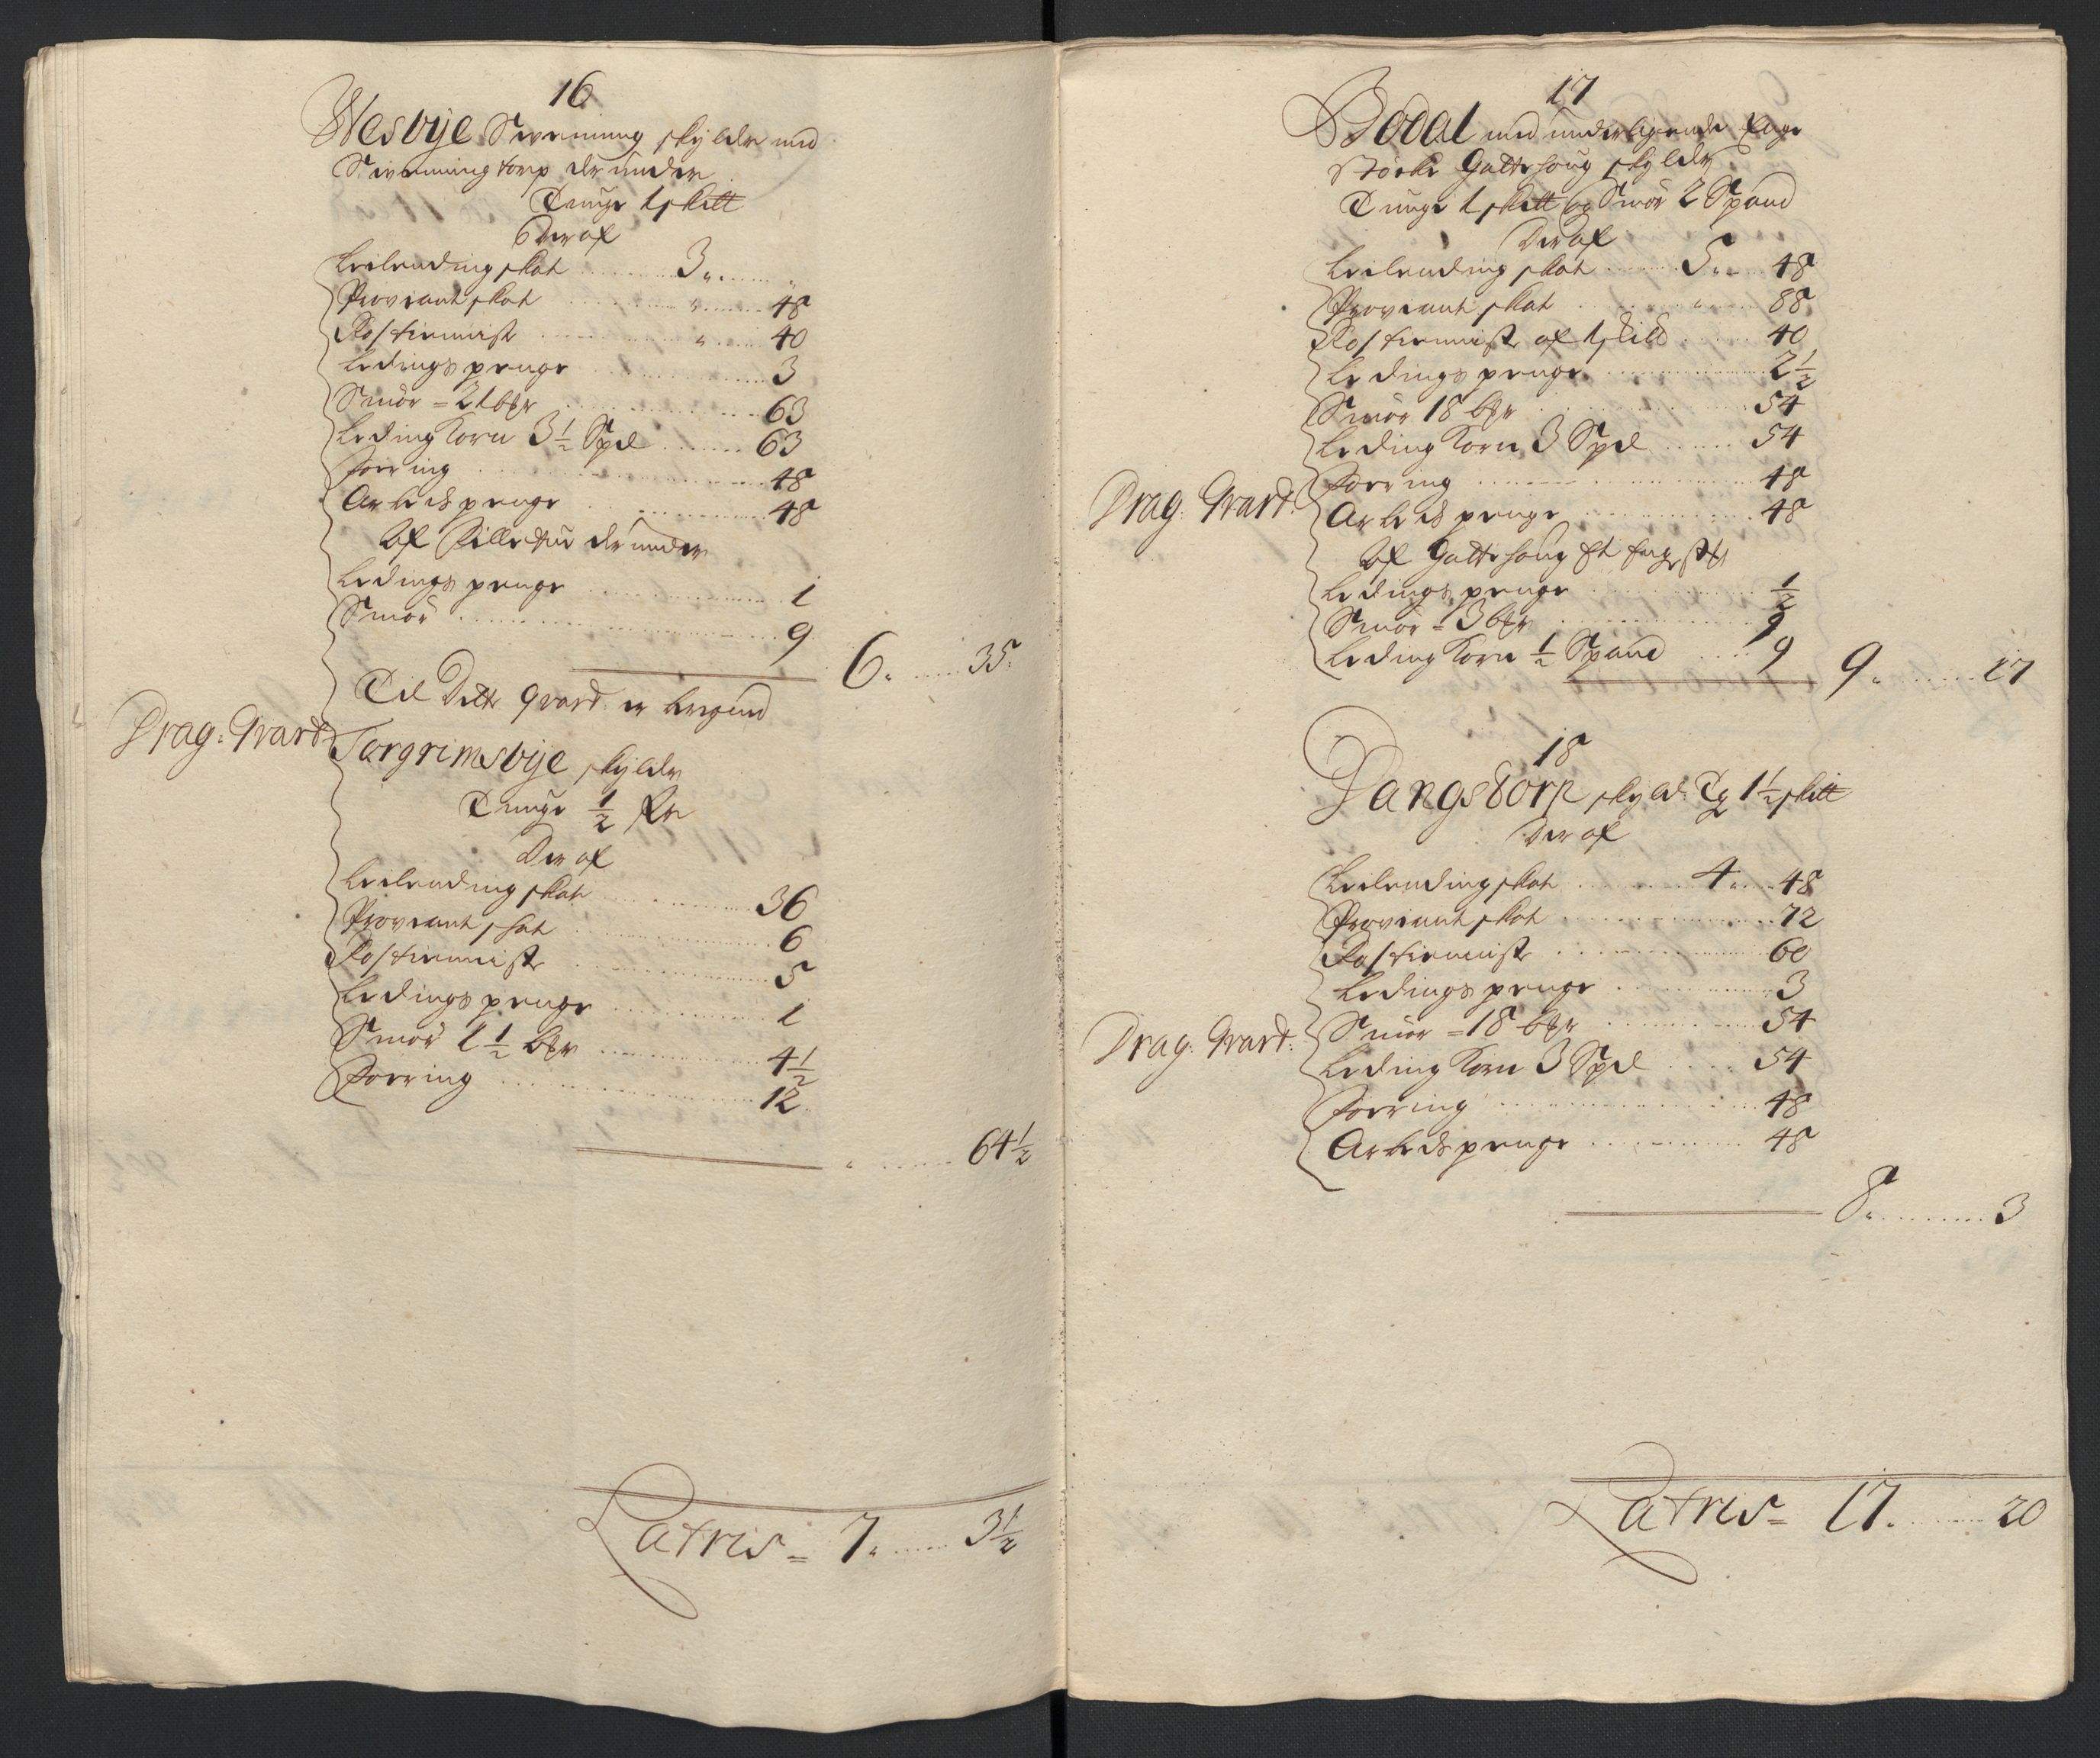 16
Wesbÿe Svenning skylder med
Svenningtorp der under
Tunge 1 skltt
Der af
Leilending skat 3 „
Proviant skat „ 48
Rostieniste „ 40
Ledings penge 3
Smör = 21 bpr 63
Leding Korn 3 1/2 Spd 63
Foering 48
Arbeids penge 48
Af der under
Ledings penge 1
Smör 9
6 „ 35
Til Dette qvard er bregned
Drag: Qvard
Torgrimsbÿe skylder
Tunge 1/2 Fr
Der af
Leilending skat 36
Proviant skat 6
Rostieniste 5
Ledings penge 1
Smör 1 1/2 bpr 4 1/2
Foering 12
„ 64 1/2
Latris = 7 „ 3 1/2
17
Bödal med underligende Enge
støche Gattehoug skylder
Tunge 1 skltt og Smör 2 Spand
Der af
Leilending skat 5 „ 48
Proviant skat „ 88
Rostieniste af 1 skild 40
Ledings penge 2 1/2
Smör 18 bpr 54
Leding Korn 3 Spd 54
Foering 48
Drag: Qvard:
Arbeids penge 48
Af Gattehoug Et
Ledings penge 1/2
Smör = 3 bpr 9
Leding Korn 1/2 Spand 9
9 „ 17
18
Dangstorp skyld: Tg 1 1/2 skltt
Der af
Leilending skat 4 „ 48
Proviant skat 72
Rostieniste 60
Ledings penge 3
Smör = 18 bpr 54
Drag: Qvard:
Leding Korn 3 Spd 54
Foering 48
Arbeds penge 48
8 „ 3
Latris = 17. 20